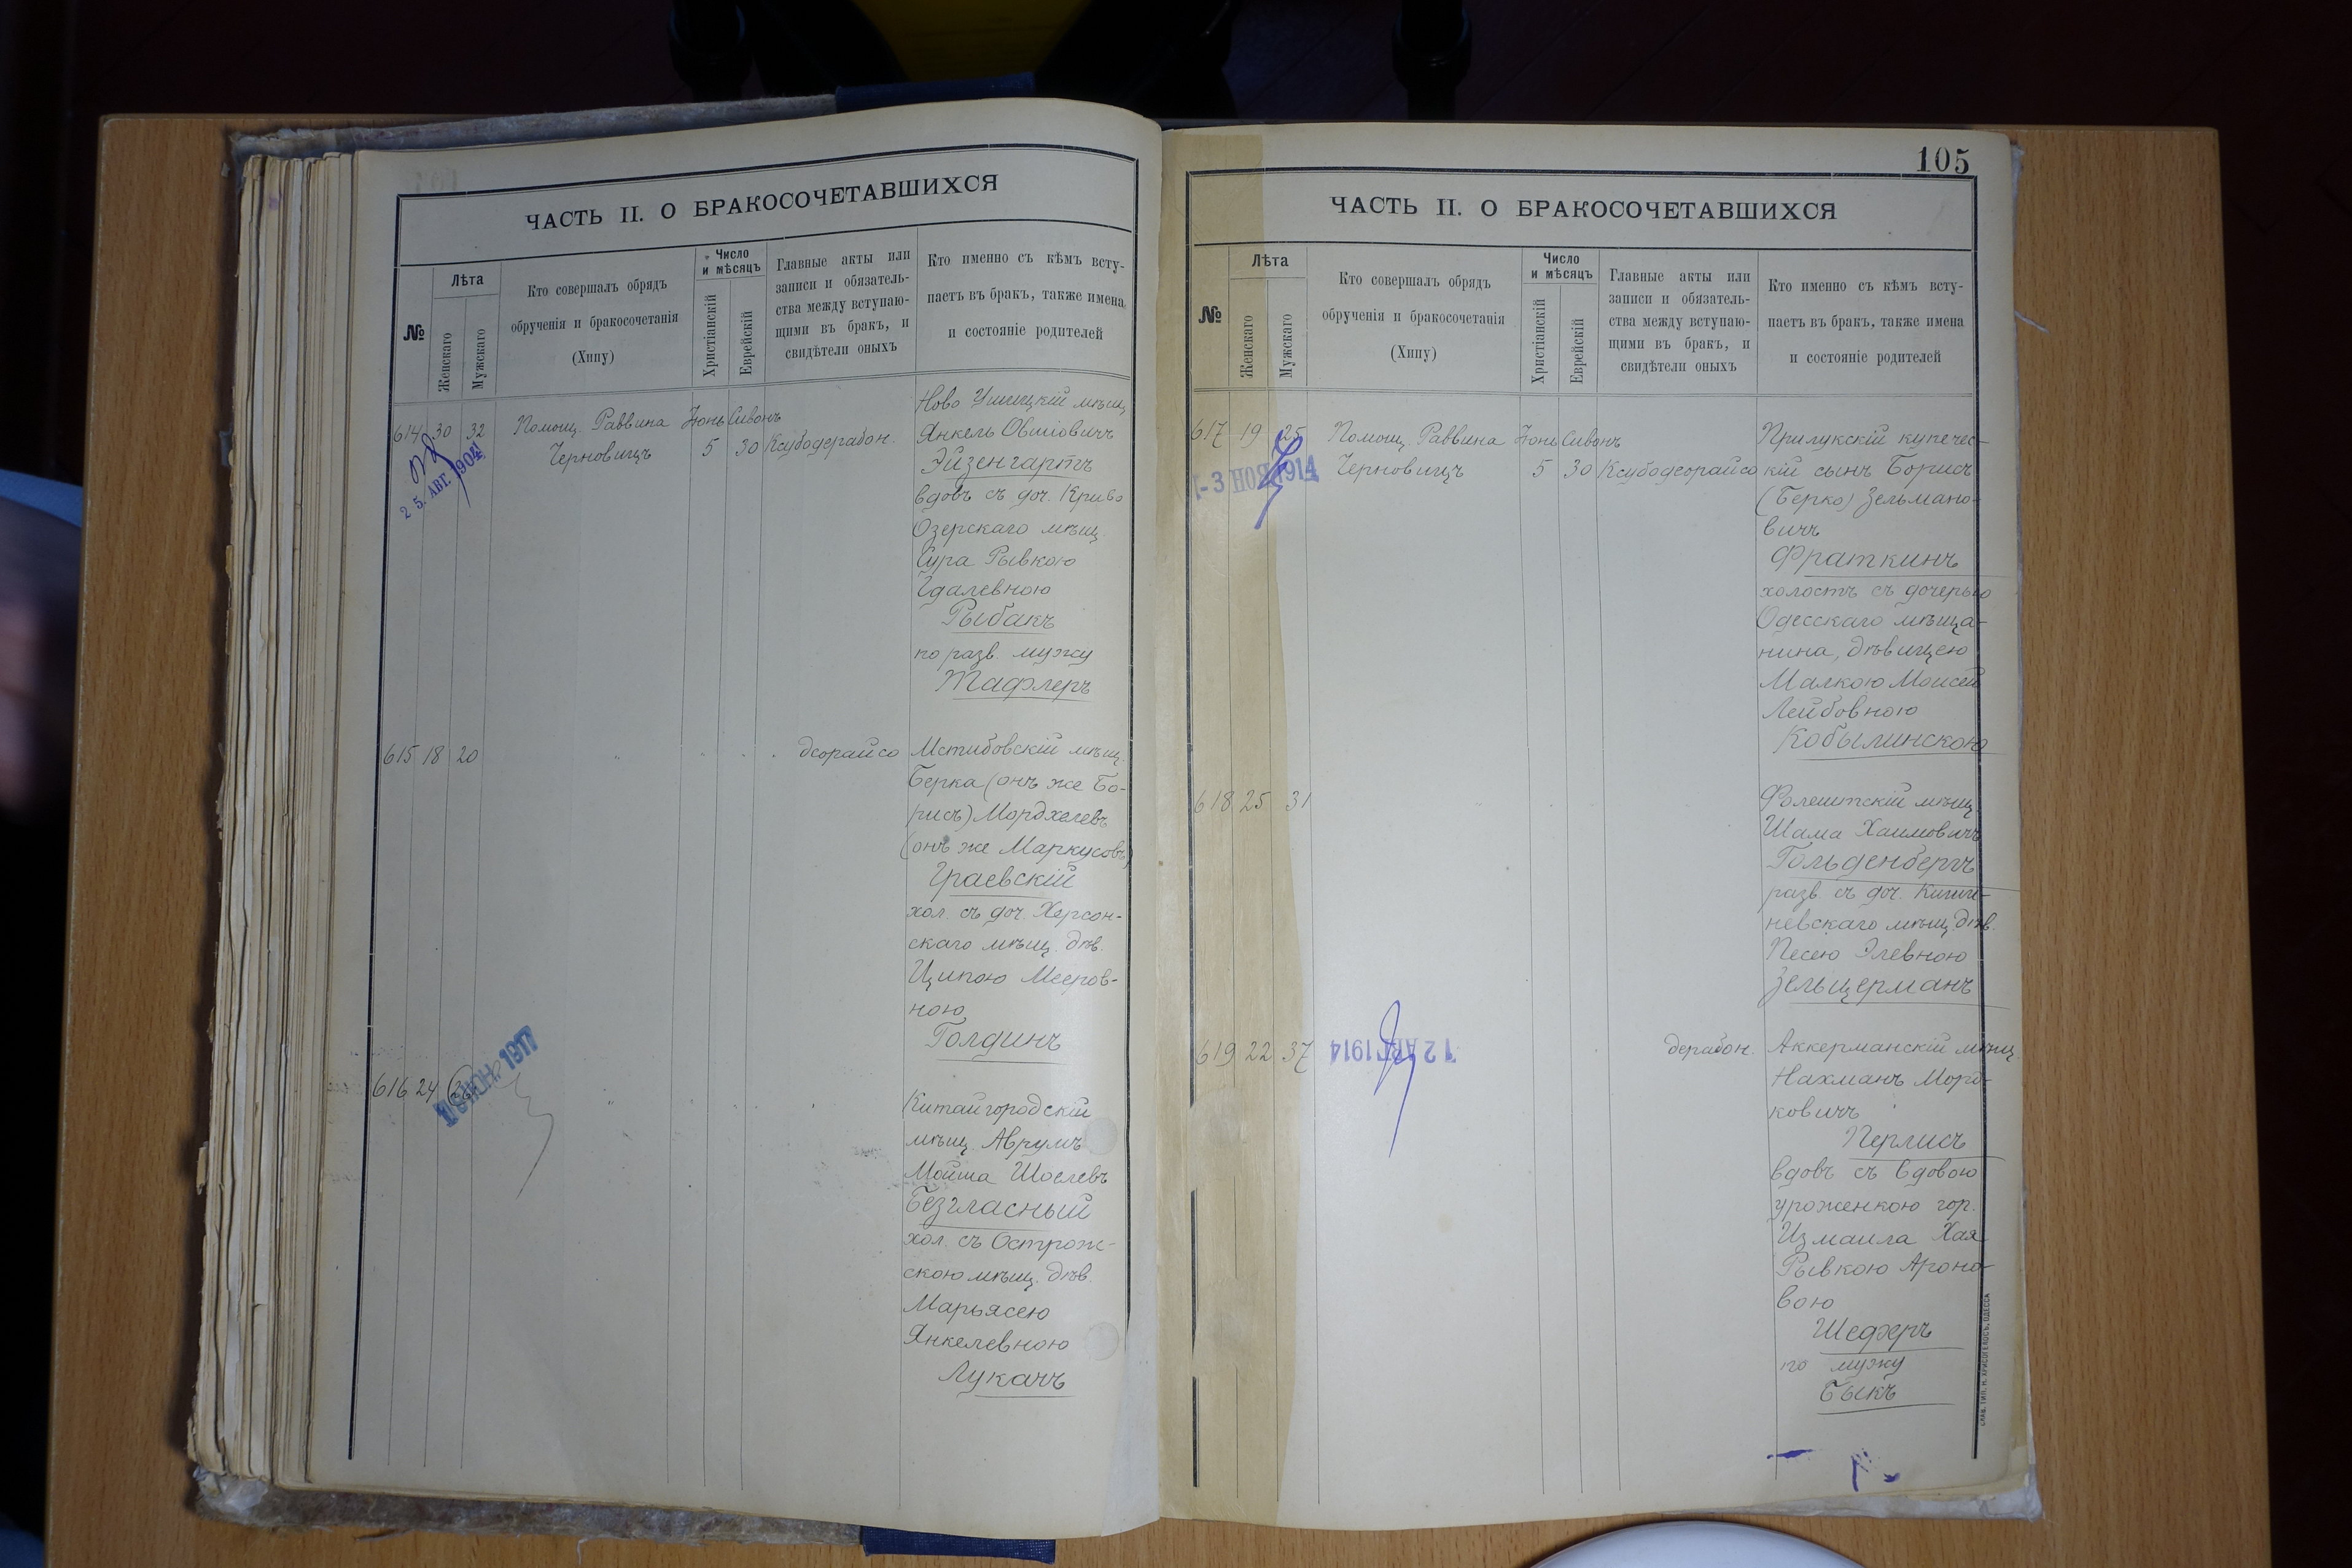 ЧАСТЬ II. О БРАКОСОЧЕТАВШИХСЯ
№
Лѣта
Женскаго
Мужскаго
Кто совершалъ обрядъ
обрученія и бракосочетанія
(Хипу)
Число
и мѣсяцъ
Христіанскій
Еврейскій
Главные акты или
записи и обязатель-
ства между вступаю-
щими въ бракъ, и
свидѣтели оныхъ
Кто именно съ кѣмъ всту-
паетъ въ бракъ, также имена
и состояніе родителей
614 30 32 Помощ. Раввина Іюнь Сивонъ
Черновицъ 5 30 Ксубодерабон.
2 5. АВГ. 1904
Ново Ушицкій мѣщ.
Янкель Овшіовичъ
Эйзенгартъ
вдовъ съ доч. Криво
Озерскаго мѣщ.
Сура Рывкою
Гдалевною
Рыбакъ
по разв. мужу
Тафлеръ
615 18 20 " " " " деорайсо
Мстибовскій мѣщ.
Берка (онъ же Бо-
рисъ) Мордхелевъ
(онъ же Маркусовъ)
Граевскій
хол. съ доч. Херсон-
скаго мѣщ. дѣв.
Ципою Мееров-
ною
Голдинъ
616 24 26 " " " "
ІЮН. 1917
Китайгородскій
мѣщ. Аврумъ
Мойша Шоелевъ
Безгласный
хол. съ Острож-
скою мѣщ. дѣв.
Марьясею
Янкелевною
Лукачъ
105
ЧАСТЬ II. О БРАКОСОЧЕТАВШИХСЯ
№
Лѣта
Женскаго
Мужскаго
Кто совершалъ обрядъ
обрученія и бракосочетанія
(Хипу)
Число
и мѣсяцъ
Христіанскій
Еврейскій
Главные акты или
записи и обязатель-
ства между вступаю-
щими въ бракъ, и
свидѣтели оныхъ
Кто именно съ кѣмъ всту-
паетъ въ бракъ, также имена
и состояніе родителей
617 19 25 Помощ. Раввина Іюнь Сивонъ
Черновицъ 5 30 Ксубодеорайсо
- 3 НОЯ 1914
Прилукскій купечес-
кій сынъ Борисъ
(Берко) Зельмано-
вичъ
Фраткинъ
холостъ съ дочерью
Одесскаго мѣща-
нина, дѣвицею
Малкою Моисей
Лейбовною
Кобылинскою
618 25 31
Фалештскій мѣщ.
Шама Хаимовичъ
Гольденбергъ
разв. съ доч. Кише-
невскаго мѣщ. дѣв.
Песею Элевною
Зельцерманъ
619 22 37 дерабон.
12 АВГ 1914
Аккерманскій мѣщ.
Нахманъ Морд-
ковичъ
Перлисъ
вдовъ съ вдовою
уроженкою гор.
Измаила Хая
Рывкою Ароно-
вою
Шеферъ
по мужу
Быкъ
СЛАВ. ТИП. Н. ХРИСОГЕЛОСЪ, ОДЕССА